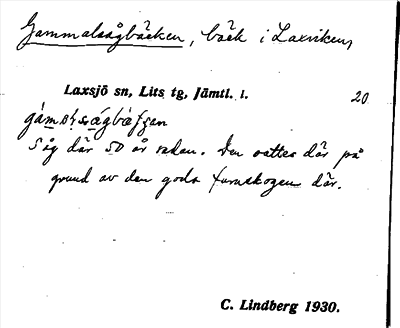 Gammalsågbäcken, bäck i Laxviken,
Laxsjö sn, Lits tg, Jämtl. l. 20
Såg där 50 år sedan. Den sattes där på
grund av den goda furuskogen där.
C. Lindberg 1930.